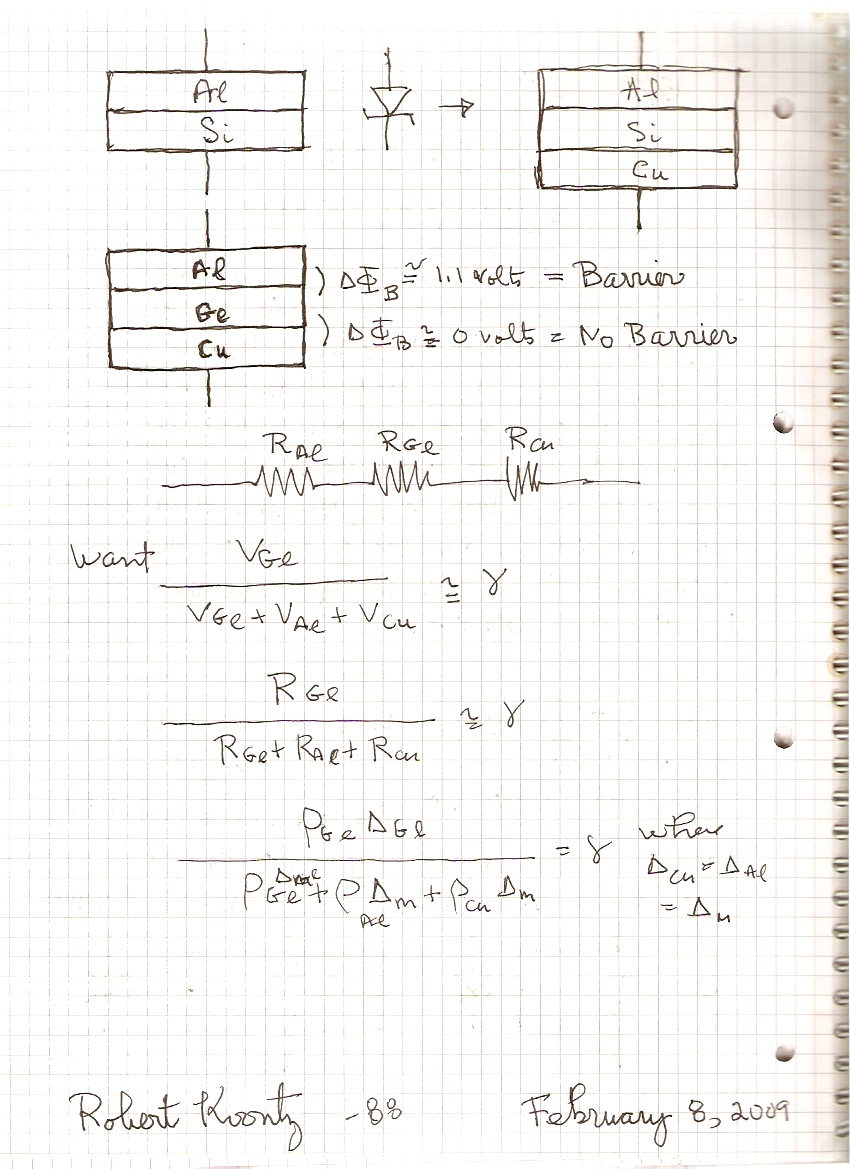 Al
Si
Al
Si
Cu
Al
Ge
Cu
) ΔΦ_B ≅ 1.1 volts = Barrier
) ΔΦ_B ≅ 0 volts = No Barrier
R_Al R_Ge R_Cu
Want V_Ge
V_Ge + V_Al + V_Cu ≅ γ
R_Ge
R_Ge + R_Al + R_Cu ≅ γ
ρ_Ge Δ_Ge
= γ where
Δ_Cu = Δ_Al
= Δ_M
ρ_Ge Δ_Ge + ρ_Al Δ_m + ρ_Cu Δ_m
Robert Koontz -88 February 8, 2009